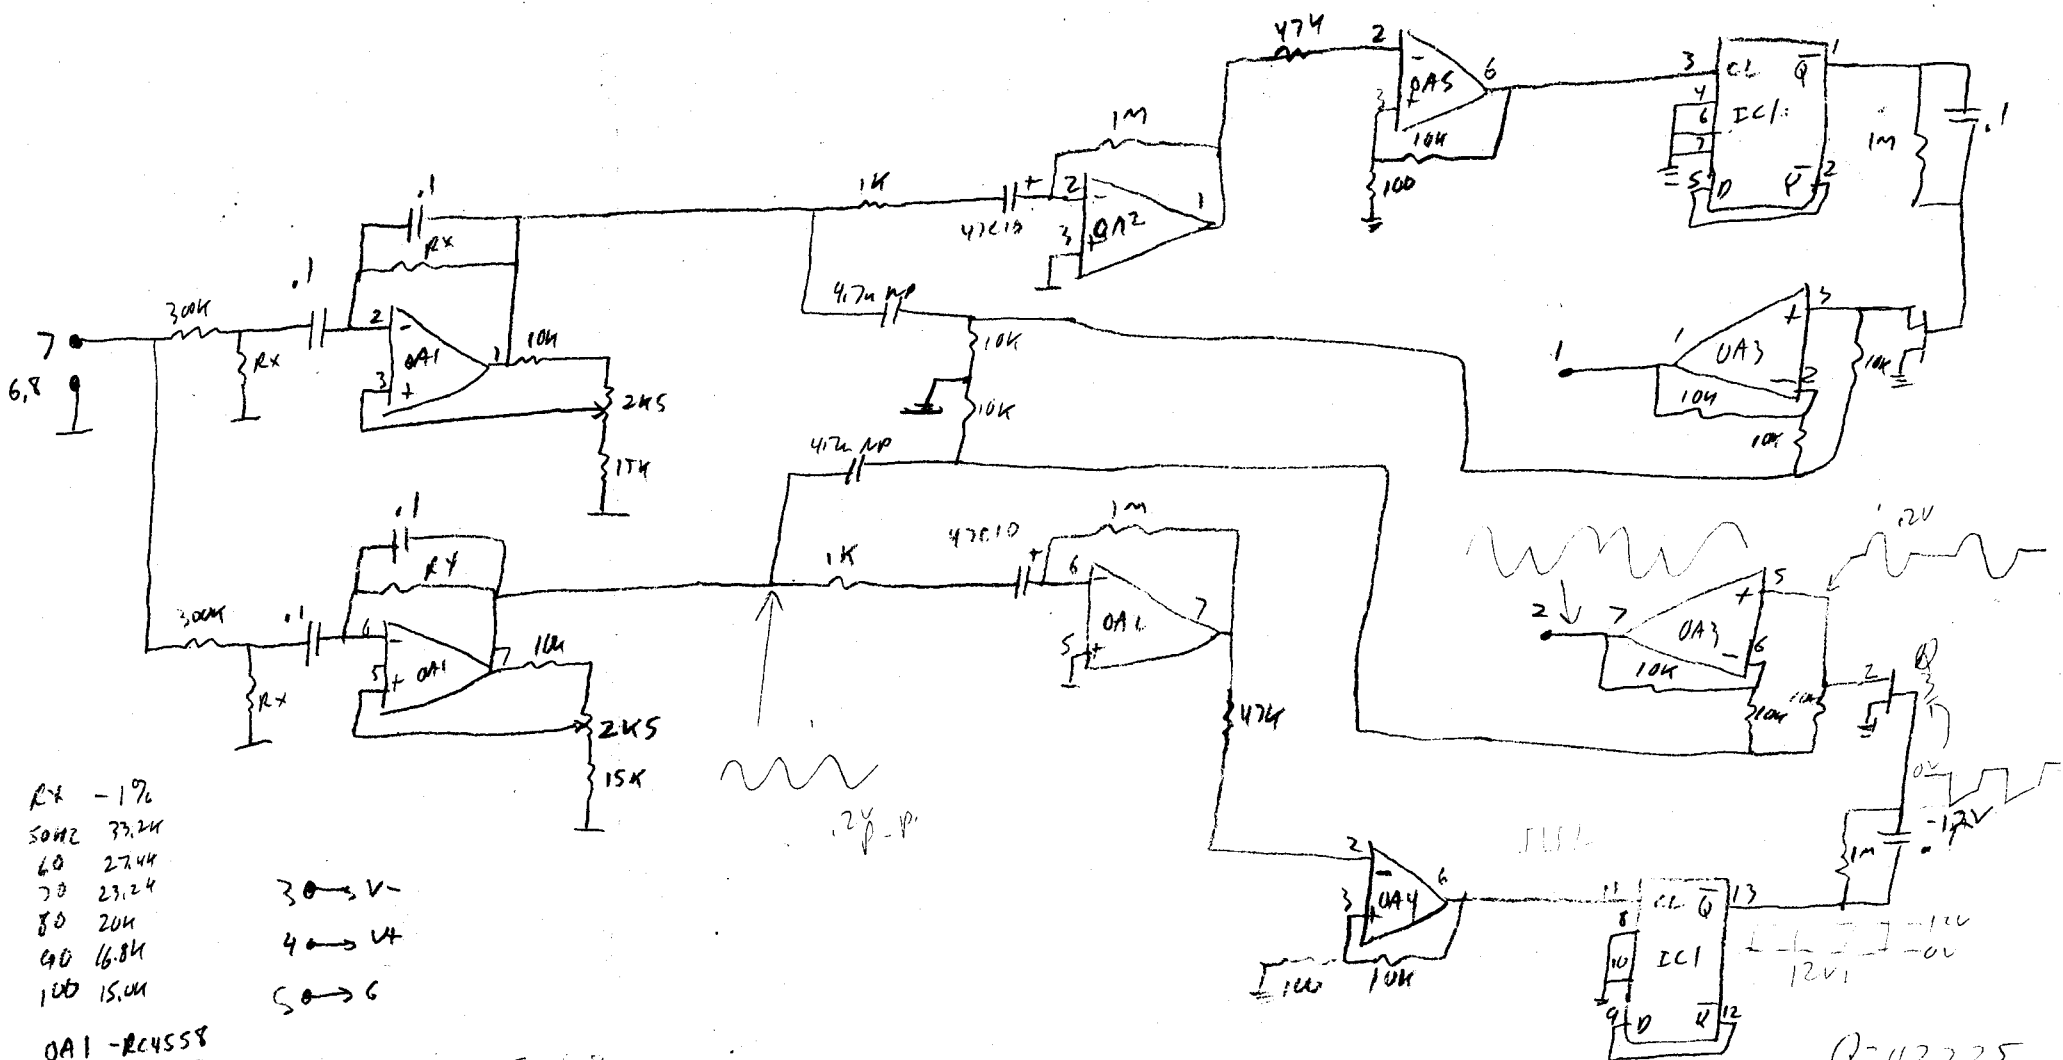 47K
2
-
OA5
6
3
+
10K
100
3
CL
Q
1
4
6
IC1
7
5
D
2
1M
.1
1M
1K
+
47C10
2
-
OA2
3
+
1
.1
RX
.1
300K
7
6,8
RX
2
-
OA1
3
+
1
10K
2K5
15K
4.7u NP
10K
10K
4.7u NP
1
1
OA3
+
-
2
10K
10K
10K
.1
RX
300K
.1
RX
6
-
OA1
5
+
7
10K
2K5
15K
1K
47C10
+
1M
6
-
5
+
7
47K
.2V
P-P
.2V
2
7
OA3
+
5
-
6
10K
10K
2
0V
-12V
1M
2
-
OA4
3
+
6
10K
100
11
CL
Q
13
8
10
IC1
9
D
12
12V
0V
RX -1%
50HZ 33.2K
60 27.4K
70 23.2K
80 20K
90 16.8K
100 15.0K
3 V-
4 V+
5 6
OA1 -RC4558